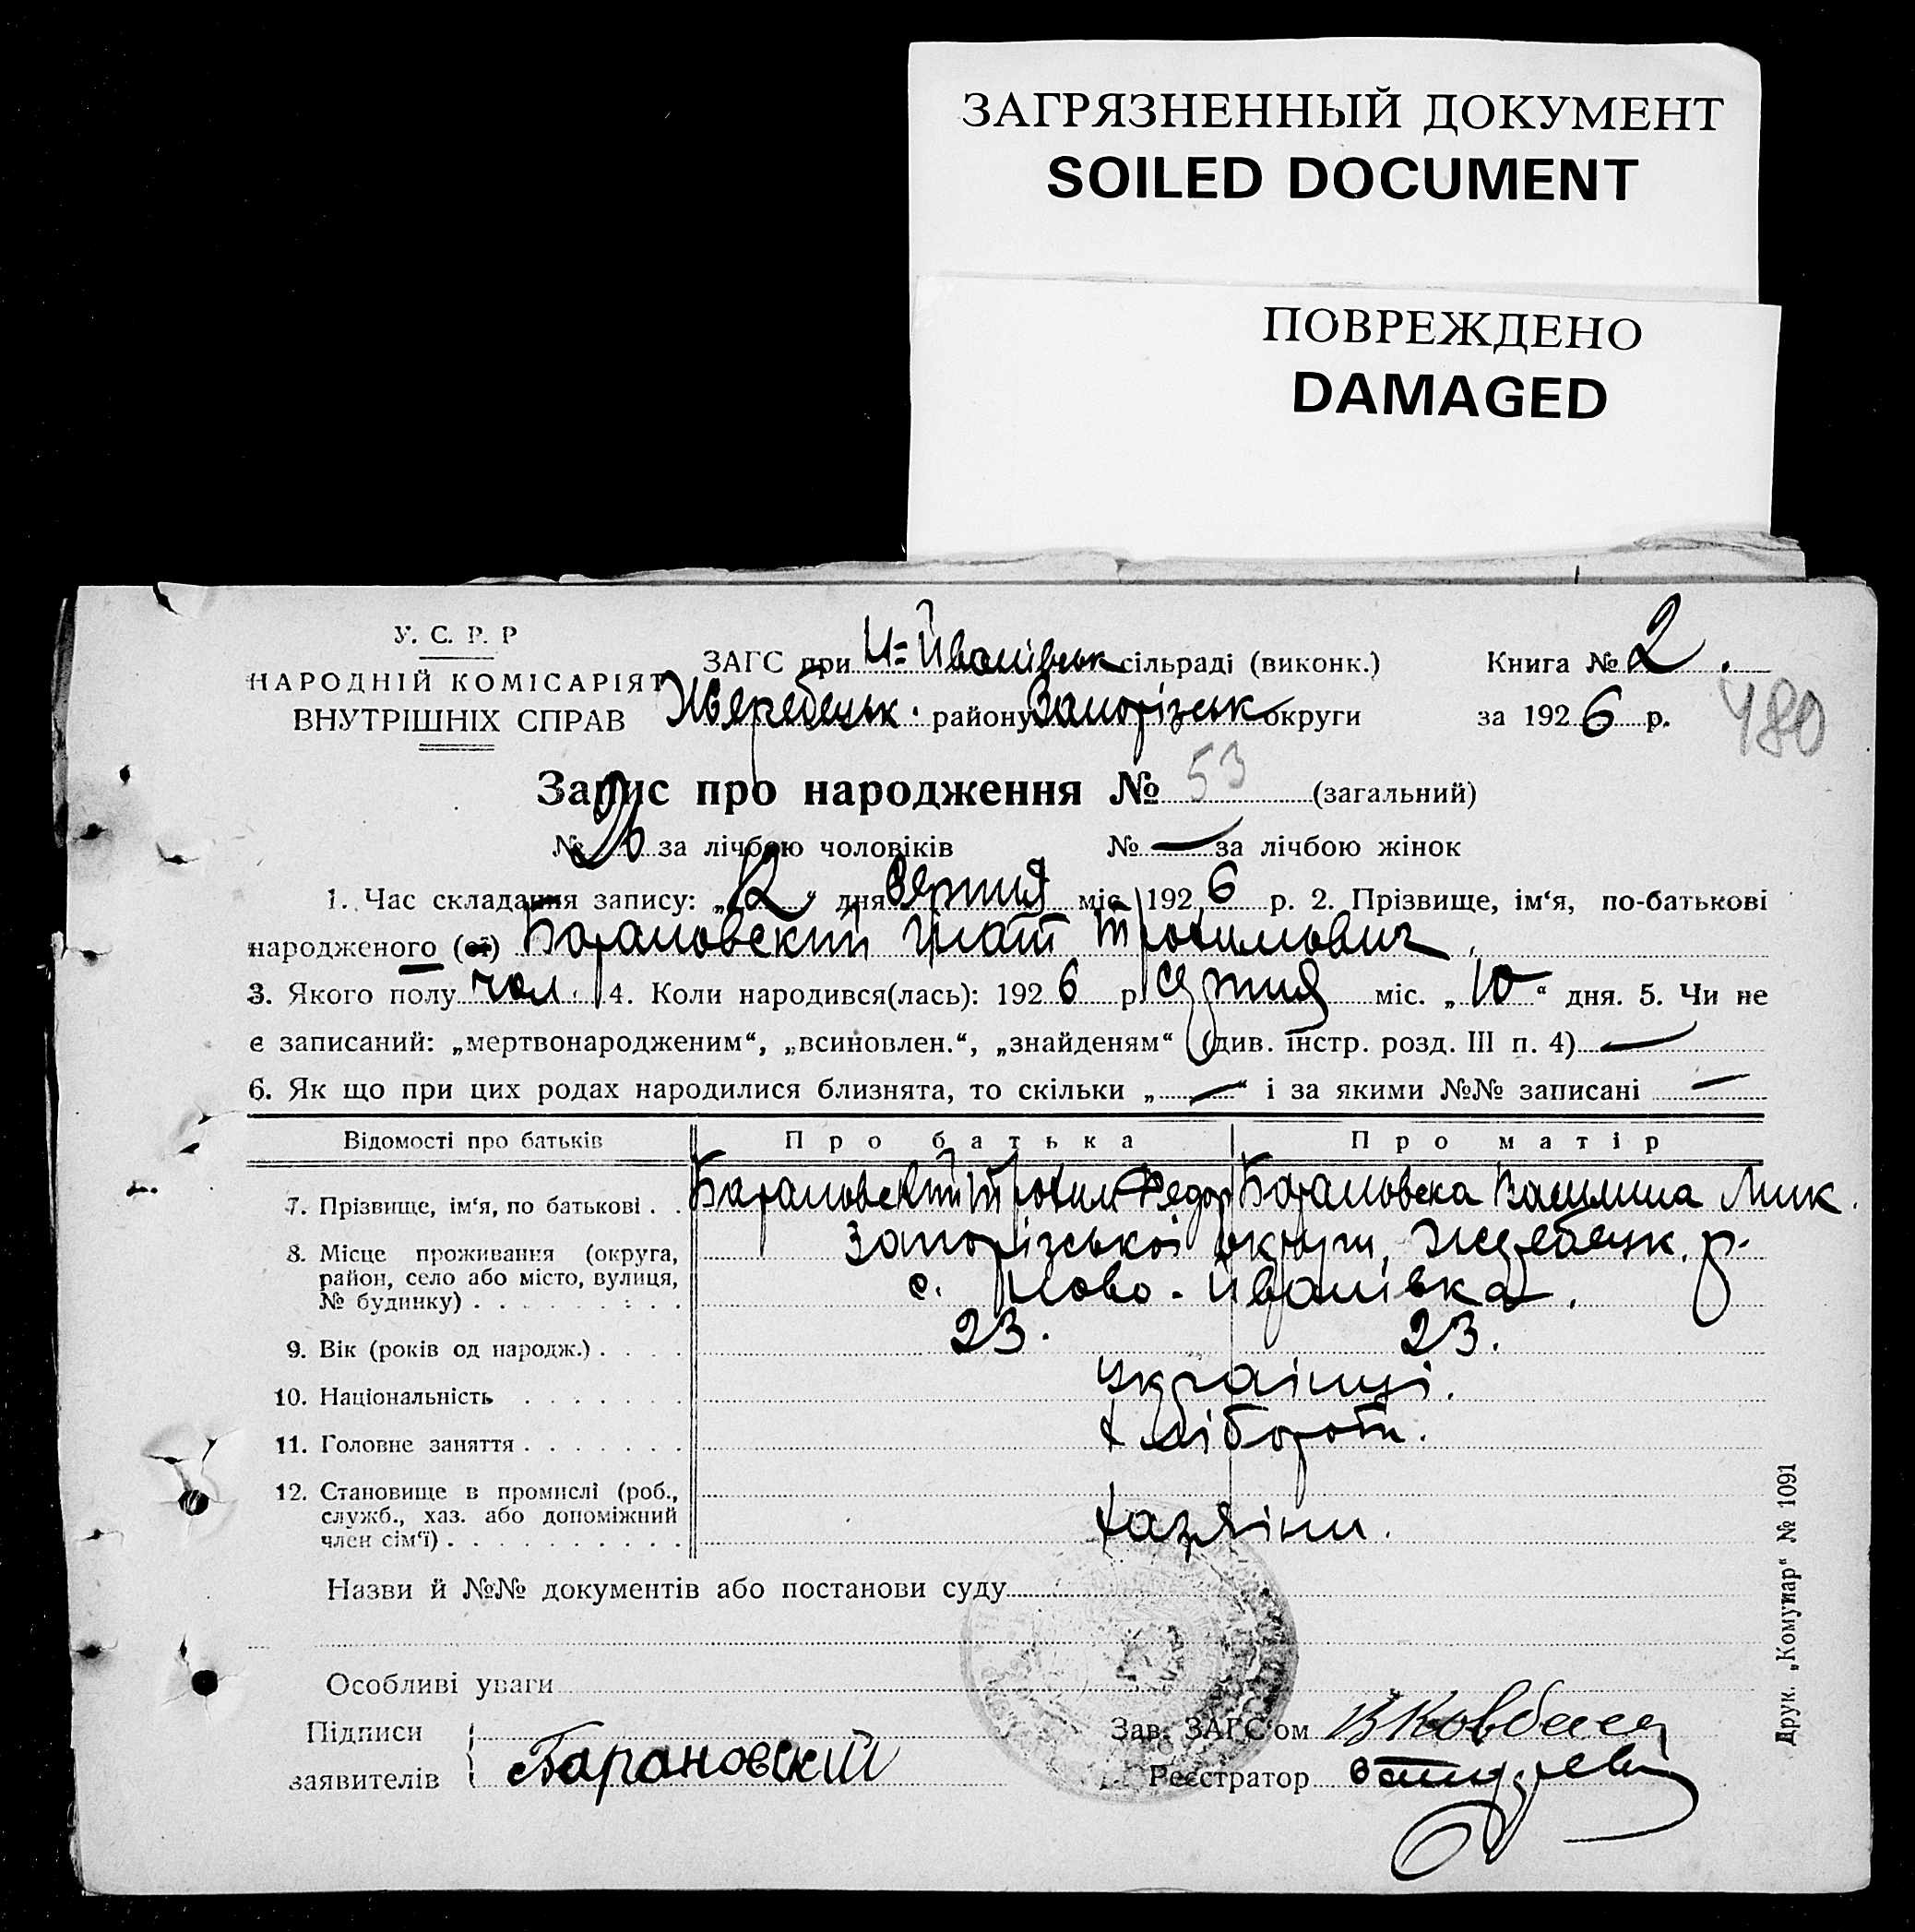 ЗАГРЯЗНЕННЫЙ ДОКУМЕНТ
SOILED DOCUMENT
ПОВРЕЖДЕНО
DAMAGED
У. С. Р. Р
НАРОДНІЙ КОМІСАРІЯТ
ВНУТРІШНІХ СПРАВ
ЗАГС при Н=Йванівськ сільраді (виконк.)
Жеребецьк. району Запорізськ округи
Книга № 2.
за 1926 р.
480
Запис про народження № 53 (загальний)
№ 26 за лічбою чоловіків № — за лічбою жінок
1. Час складання запису: „12“ дня Серпня міс. 1926 р. 2. Прізвище, ім‘я, по-батькові
народженого (ої) Барановский Гнат Трохимович.
3. Якого полу чол. 4. Коли народився(лась): 1926 р. Серпня міс. „10“ дня. 5. Чи не
є записаний: „мертвонародженим“, „всиновлен.“, „знайденям“ (див. інстр. розд. III п. 4) —
6. Як що при цих родах народилися близнята, то скільки „—“ і за якими №№ записані —
Відомості про батьків Про батька Про матір
7. Прізвище, ім‘я, по батькові . . Барановский Трохим Федор Барановска Василина Мик.
8. Місце проживання (округа, район, село або місто, вулиця, № будинку) . . . . . . . . . Запорізської округи, Жеребецьк. р.
с. Ново-Йванівка.
9. Вік (років од народж.) . . . . 23. 23.
10. Національність . . . . . . . Українці.
11. Головне заняття . . . . . . . Хлібороби.
12. Становище в промислі (роб., служб., хаз. або допоміжний член сім‘ї) . . . . . . . . . . Хазяіни.
Назви й №№ документів або постанови суду
Особливі уваги
Підписи
заявителів Барановский
Зав. ЗАГС‘ом
Реєстратор
Друк. „Комунар“ № 1091